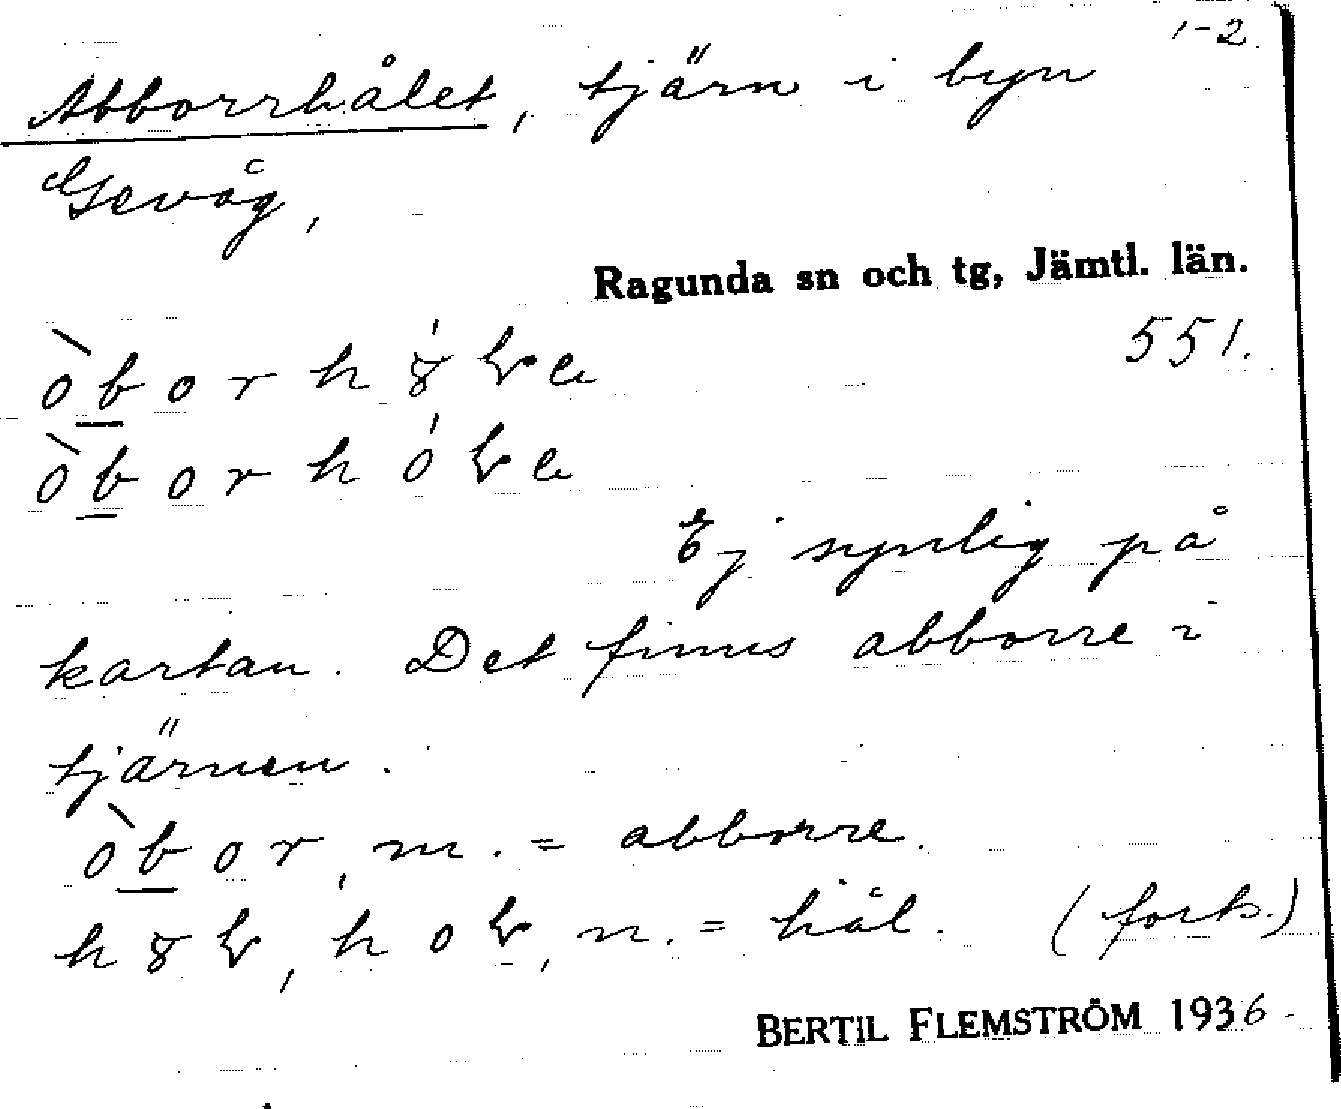 1-2
Abborrhålet, tjärn i byn
Gevåg,
Ragunda sn och tg, Jämtl. län.
551.
Ej synlig på
kartan. Det finns abborre i
tjärnen.
òbor, m. = abborre.
n. = hål. (forts.)
BERTIL FLEMSTRÖM 1936